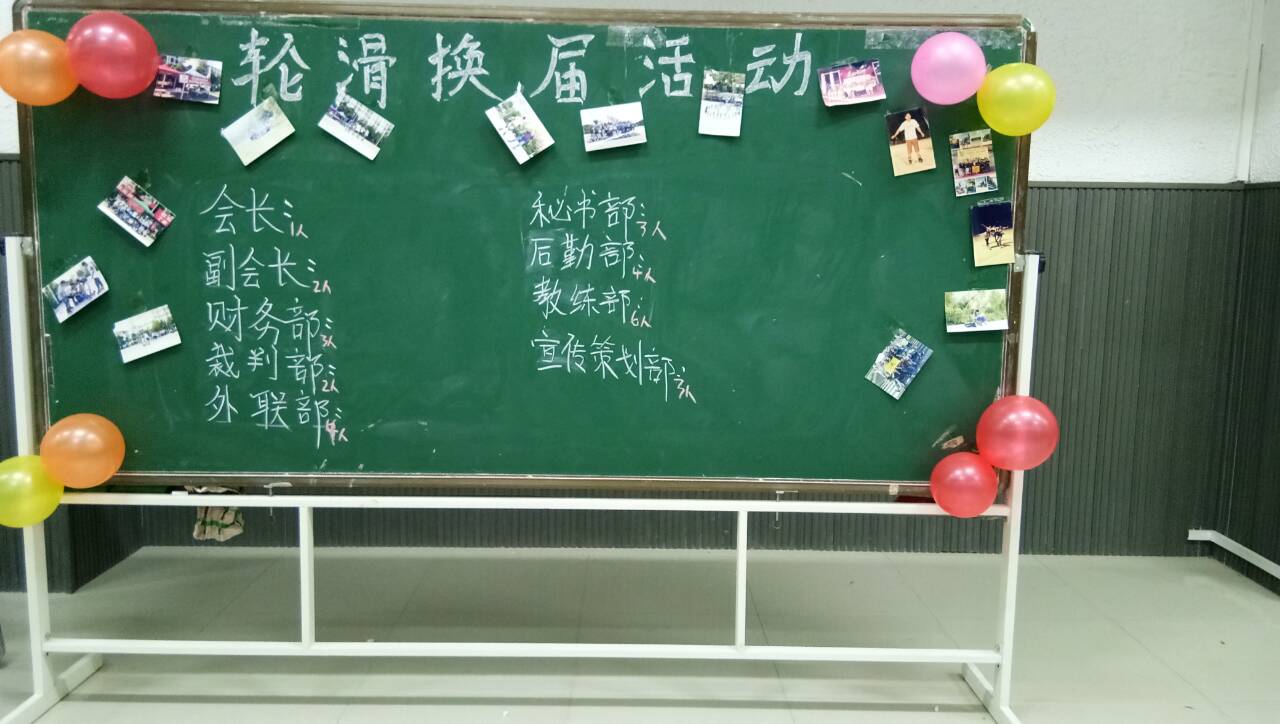 轮滑换届活动
会长：1人
副会长：2人
财务部：3人
裁判部：2人
外联部：4人
秘书部：3人
后勤部：4人
教练部：6人
宣传策划部：3人